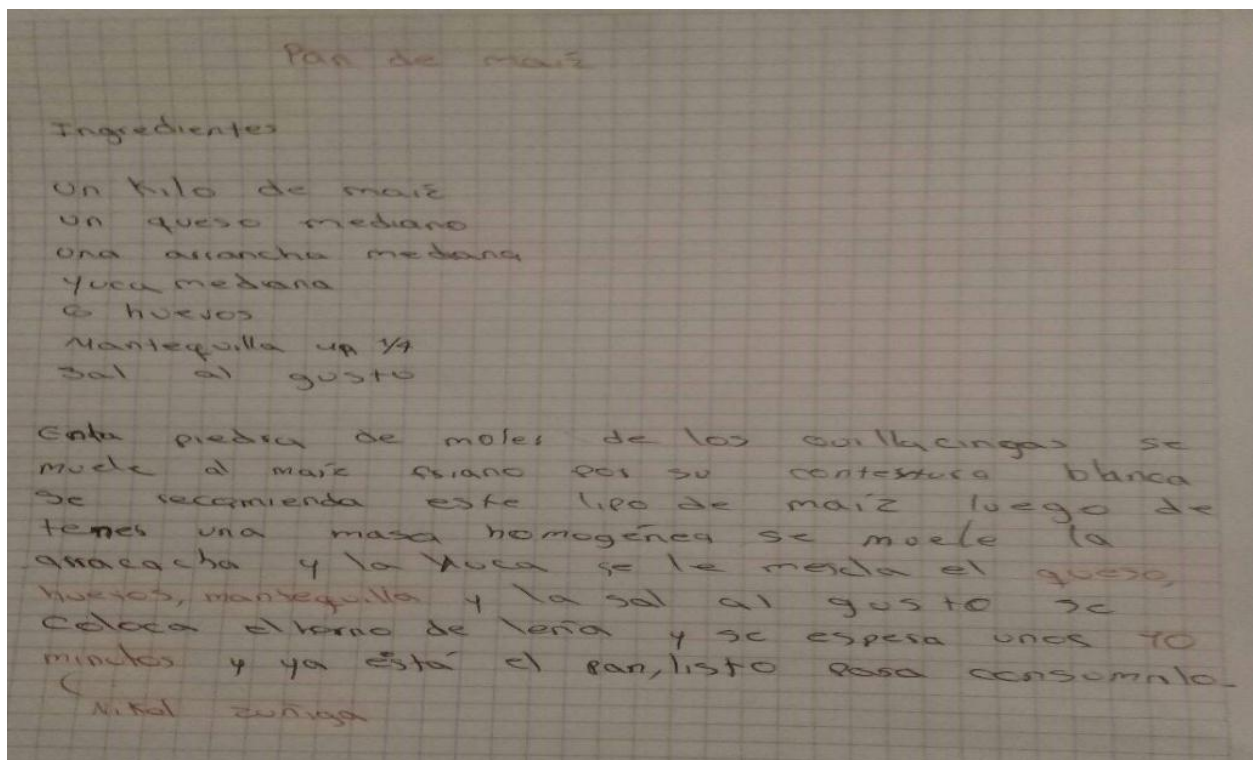 Pan de maiz
Ingredientes
Un Kilo de maiz
un queso mediano
una arrancha mediana
Yuca mediana
6 huevos
Mantequilla un 1/4
Sal al gusto
piedra de moler de los quillacingas se
muele el maiz por su contestura blanca
se recomienda este tipo de maiz luego de
tener una masa homogénea se muele la
arracacha y la Yuca se le mescla el queso,
huevos, mantequilla y la sal al gusto se
coloca el horno de leña y se espera unos
minutos y ya está el pan, listo para consumirlo.
Nikol Zuñiga